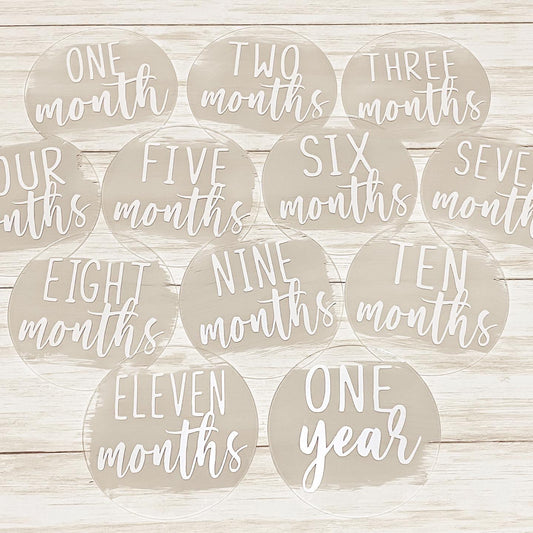 ONE
month
TWO
months
THREE
months
OUR
nths
FIVE
months
SIX
months
SEVE
month
EIGHT
months
NINE
months
TEN
months
ELEVEN
months
ONE
year